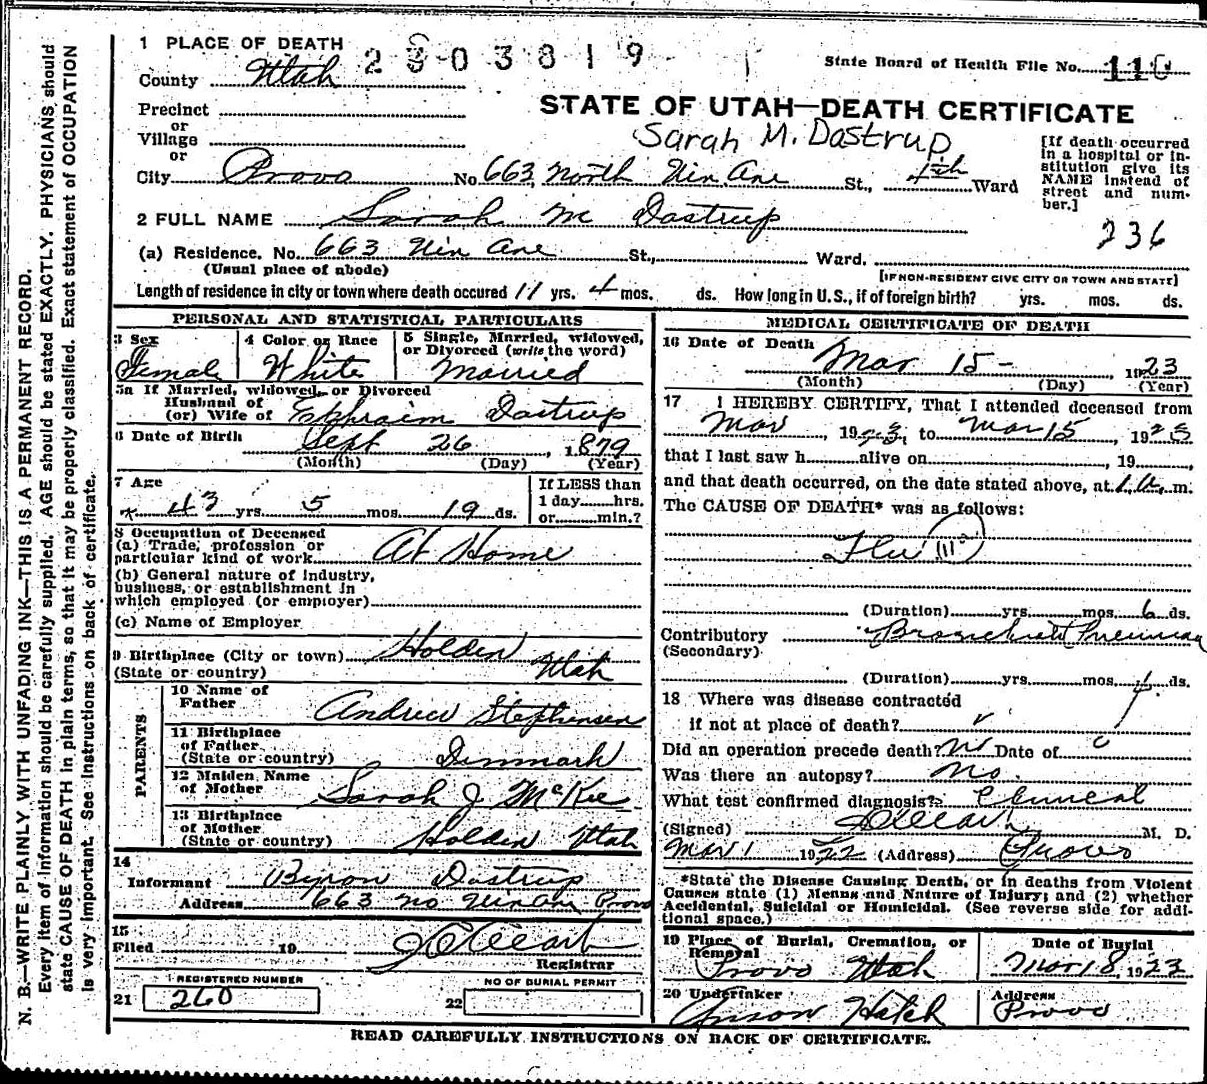 1 PLACE OF DEATH
2303819
State Board of Health File No. 110
County Utah
STATE OF UTAH—DEATH CERTIFICATE
Precinct
or
Village
or
Sarah M. Dastrup
[If death occurred in a hospital or institution give its NAME instead of street and number.]
City Provo No 663 North Uin Ave St., 4th Ward
2 FULL NAME Sarah M Dastrup
236
(a) Residence. No. 663 Uin Ave St., Ward.
(Usual place of abode)
[IF NON-RESIDENT GIVE CITY OR TOWN AND STATE]
Length of residence in city or town where death occured 11 yrs. 4 mos. ds. How long in U.S., if of foreign birth? yrs. mos. ds.
PERSONAL AND STATISTICAL PARTICULARS
3 Sex
Female
4 Color or Race
White
5 Single, Married, widowed,
or Divorced (write the word)
Married
5a If Married, widowed, or Divorced
Husband of
(or) Wife of Ephraim Dastrup
6 Date of Birth Sept 26, 1879
(Month) (Day) (Year)
7 Age
43 yrs. 5 mos. 19 ds.
If LESS than
1 day hrs.
or min.?
8 Occupation of Deceased
(a) Trade, profession or
particular kind of work At Home
(b) General nature of industry,
business, or establishment in
which employed (or employer)
(c) Name of Employer
9 Birthplace (City or town) Holden
(State or country) Utah
PARENTS
10 Name of
Father Andrew Stephensen
11 Birthplace
of Father
(State or country) Denmark
12 Maiden Name
of Mother Sarah J McKee
13 Birthplace
of Mother
(State or country) Holden Utah
14
Informant Byron Dastrup
Address 663 no Uin Ave Provo
15
Filed 19
Registrar
REGISTERED NUMBER
21 260
NO OF BURIAL PERMIT
22
MEDICAL CERTIFICATE OF DEATH
16 Date of Death
Mar 15 - 1923
(Month) (Day) (Year)
17 I HEREBY CERTIFY, That I attended deceased from
Mar, 1923, to Mar 15, 1923
that I last saw h alive on , 19 ,
and that death occurred, on the date stated above, at 1 a.m.
The CAUSE OF DEATH* was as follows:
Flu
(Duration) yrs. mos. 6 ds.
Contributory Bronchial Pneumonia
(Secondary)
(Duration) yrs. mos. 4 ds.
18 Where was disease contracted
if not at place of death?
Did an operation precede death? no Date of
Was there an autopsy? no.
What test confirmed diagnosis? Clinical
(Signed) M. D.
Mar 1 1922 (Address) Provo
*State the Disease Causing Death, or in deaths from Violent
Causes state (1) Means and Nature of Injury; and (2) whether
Accidental, Suicidal or Homicidal. (See reverse side for addi-
tional space.)
19 Place of Burial, Cremation, or
Removal
Provo Utah
Date of Burial
Mar 18, 1923
20 Undertaker
Anson Hatch
Address
Provo
READ CAREFULLY INSTRUCTIONS ON BACK OF CERTIFICATE.
N. B.—WRITE PLAINLY WITH UNFADING INK—THIS IS A PERMANENT RECORD.
Every item of information should be carefully supplied. AGE should be stated EXACTLY. PHYSICIANS should
state CAUSE OF DEATH in plain terms, so that it may be properly classified. Exact statement of OCCUPATION
is very important. See instructions on back of certificate.